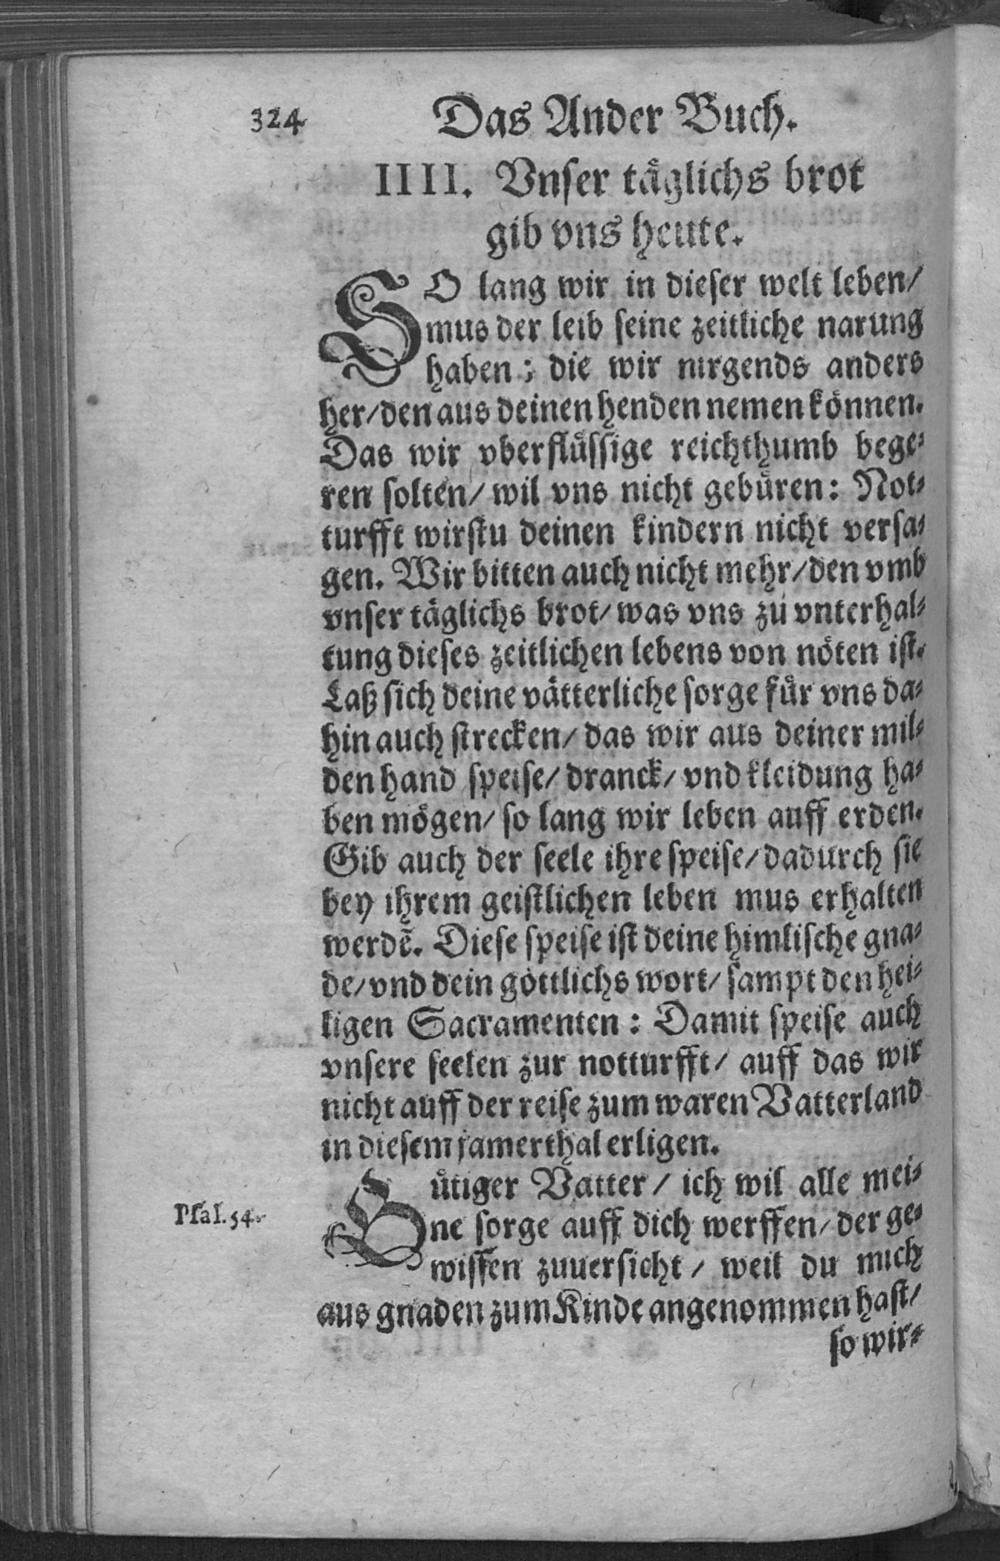 324 Das Ander Buch.
IIII. Vnser täglichs brot
gib vns heute.
SO lang wir in dieser welt leben/
mus der leib seine zeitliche narung
haben; die wir nirgends anders
her/den aus deinen henden nemen können.
Das wir vberflüssige reichthumb bege-
ren solten/ wil vns nicht gebüren: Not-
turfft wirstu deinen kindern nicht versa-
gen. Wir bitten auch nicht mehr/den vmb
vnser täglichs brot/ was vns zu vnterhal-
tung dieses zeitlichen lebens von nöten ist.
Laß sich deine vätterliche sorge für vns da-
hin auch strecken/ das wir aus deiner mil-
den hand speise/ dranck/ vnd kleidung ha-
ben mögen/ so lang wir leben auff erden.
Gib auch der seele ihre speise/dadurch sie
bey ihrem geistlichen leben mus erhalten
werdẽ. Diese speise ist deine himlische gna-
de/vnd dein göttlichs wort/ sampt den hei-
ligen Sacramenten: Damit speise auch
vnsere seelen zur notturfft/ auff das wir
nicht auff der reise zum waren Vatterland
in diesem jamerthal erligen.
Gütiger Vatter/ ich wil alle mei-
Psal. 54. ne sorge auff dich werffen/ der ge-
wissen zuuersicht/ weil du mich
aus gnaden zum Kinde angenommen hast/
so wir-